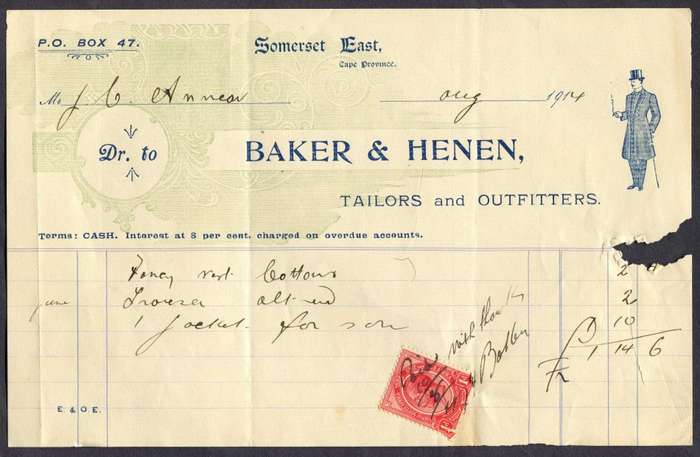 P.O. BOX 47.
Somerset East,
Cape Province.
M J. C. Annear Aug 1914
Dr. to BAKER & HENEN,
TAILORS and OUTFITTERS.
Terms: CASH. Interest at 8 per cent. charged on overdue accounts.
Fancy vest Cottons 2
June Trouser alt 2
1 Jacket for son 10
£ 1 14 6
Paid with thanks
Baker
E & O.E.